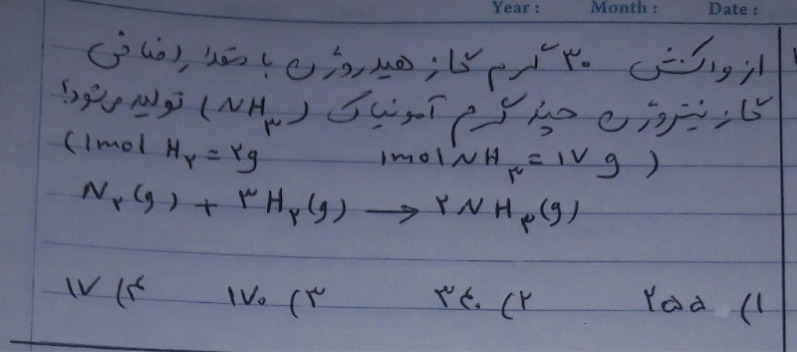 Year : Month : Date :
از واکنش ۳۰ گرم گاز هیدروژن با مقدار اضافی
گاز نیتروژن چند گرم آمونیاک (NH₃) تولید می‌شود؟
(1mol H₂ = ۲g 1mol NH₃ = ۱۷ g)
N₂(g) + ۳H₂(g) → ۲NH₃(g)
۱) ۲۵۵ ۲) ۳۴۰ ۳) ۱۷۰ ۴) ۱۷